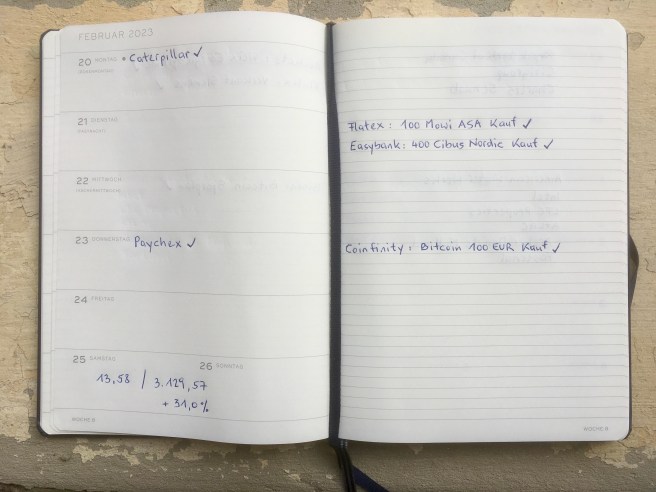 FEBRUAR 2023
20 MONTAG
• Caterpillar ✓
21 DIENSTAG
22 MITTWOCH
23 DONNERSTAG
Paychex ✓
24 FREITAG
25 SAMSTAG
26 SONNTAG
13,58 / 3.129,57
+ 31,0%
WOCHE 8
Flatex : 100 Mowi ASA Kauf ✓
Easybank : 400 Cibus Nordic Kauf ✓
Coinfinity : Bitcoin 100 EUR Kauf ✓
WOCHE 8